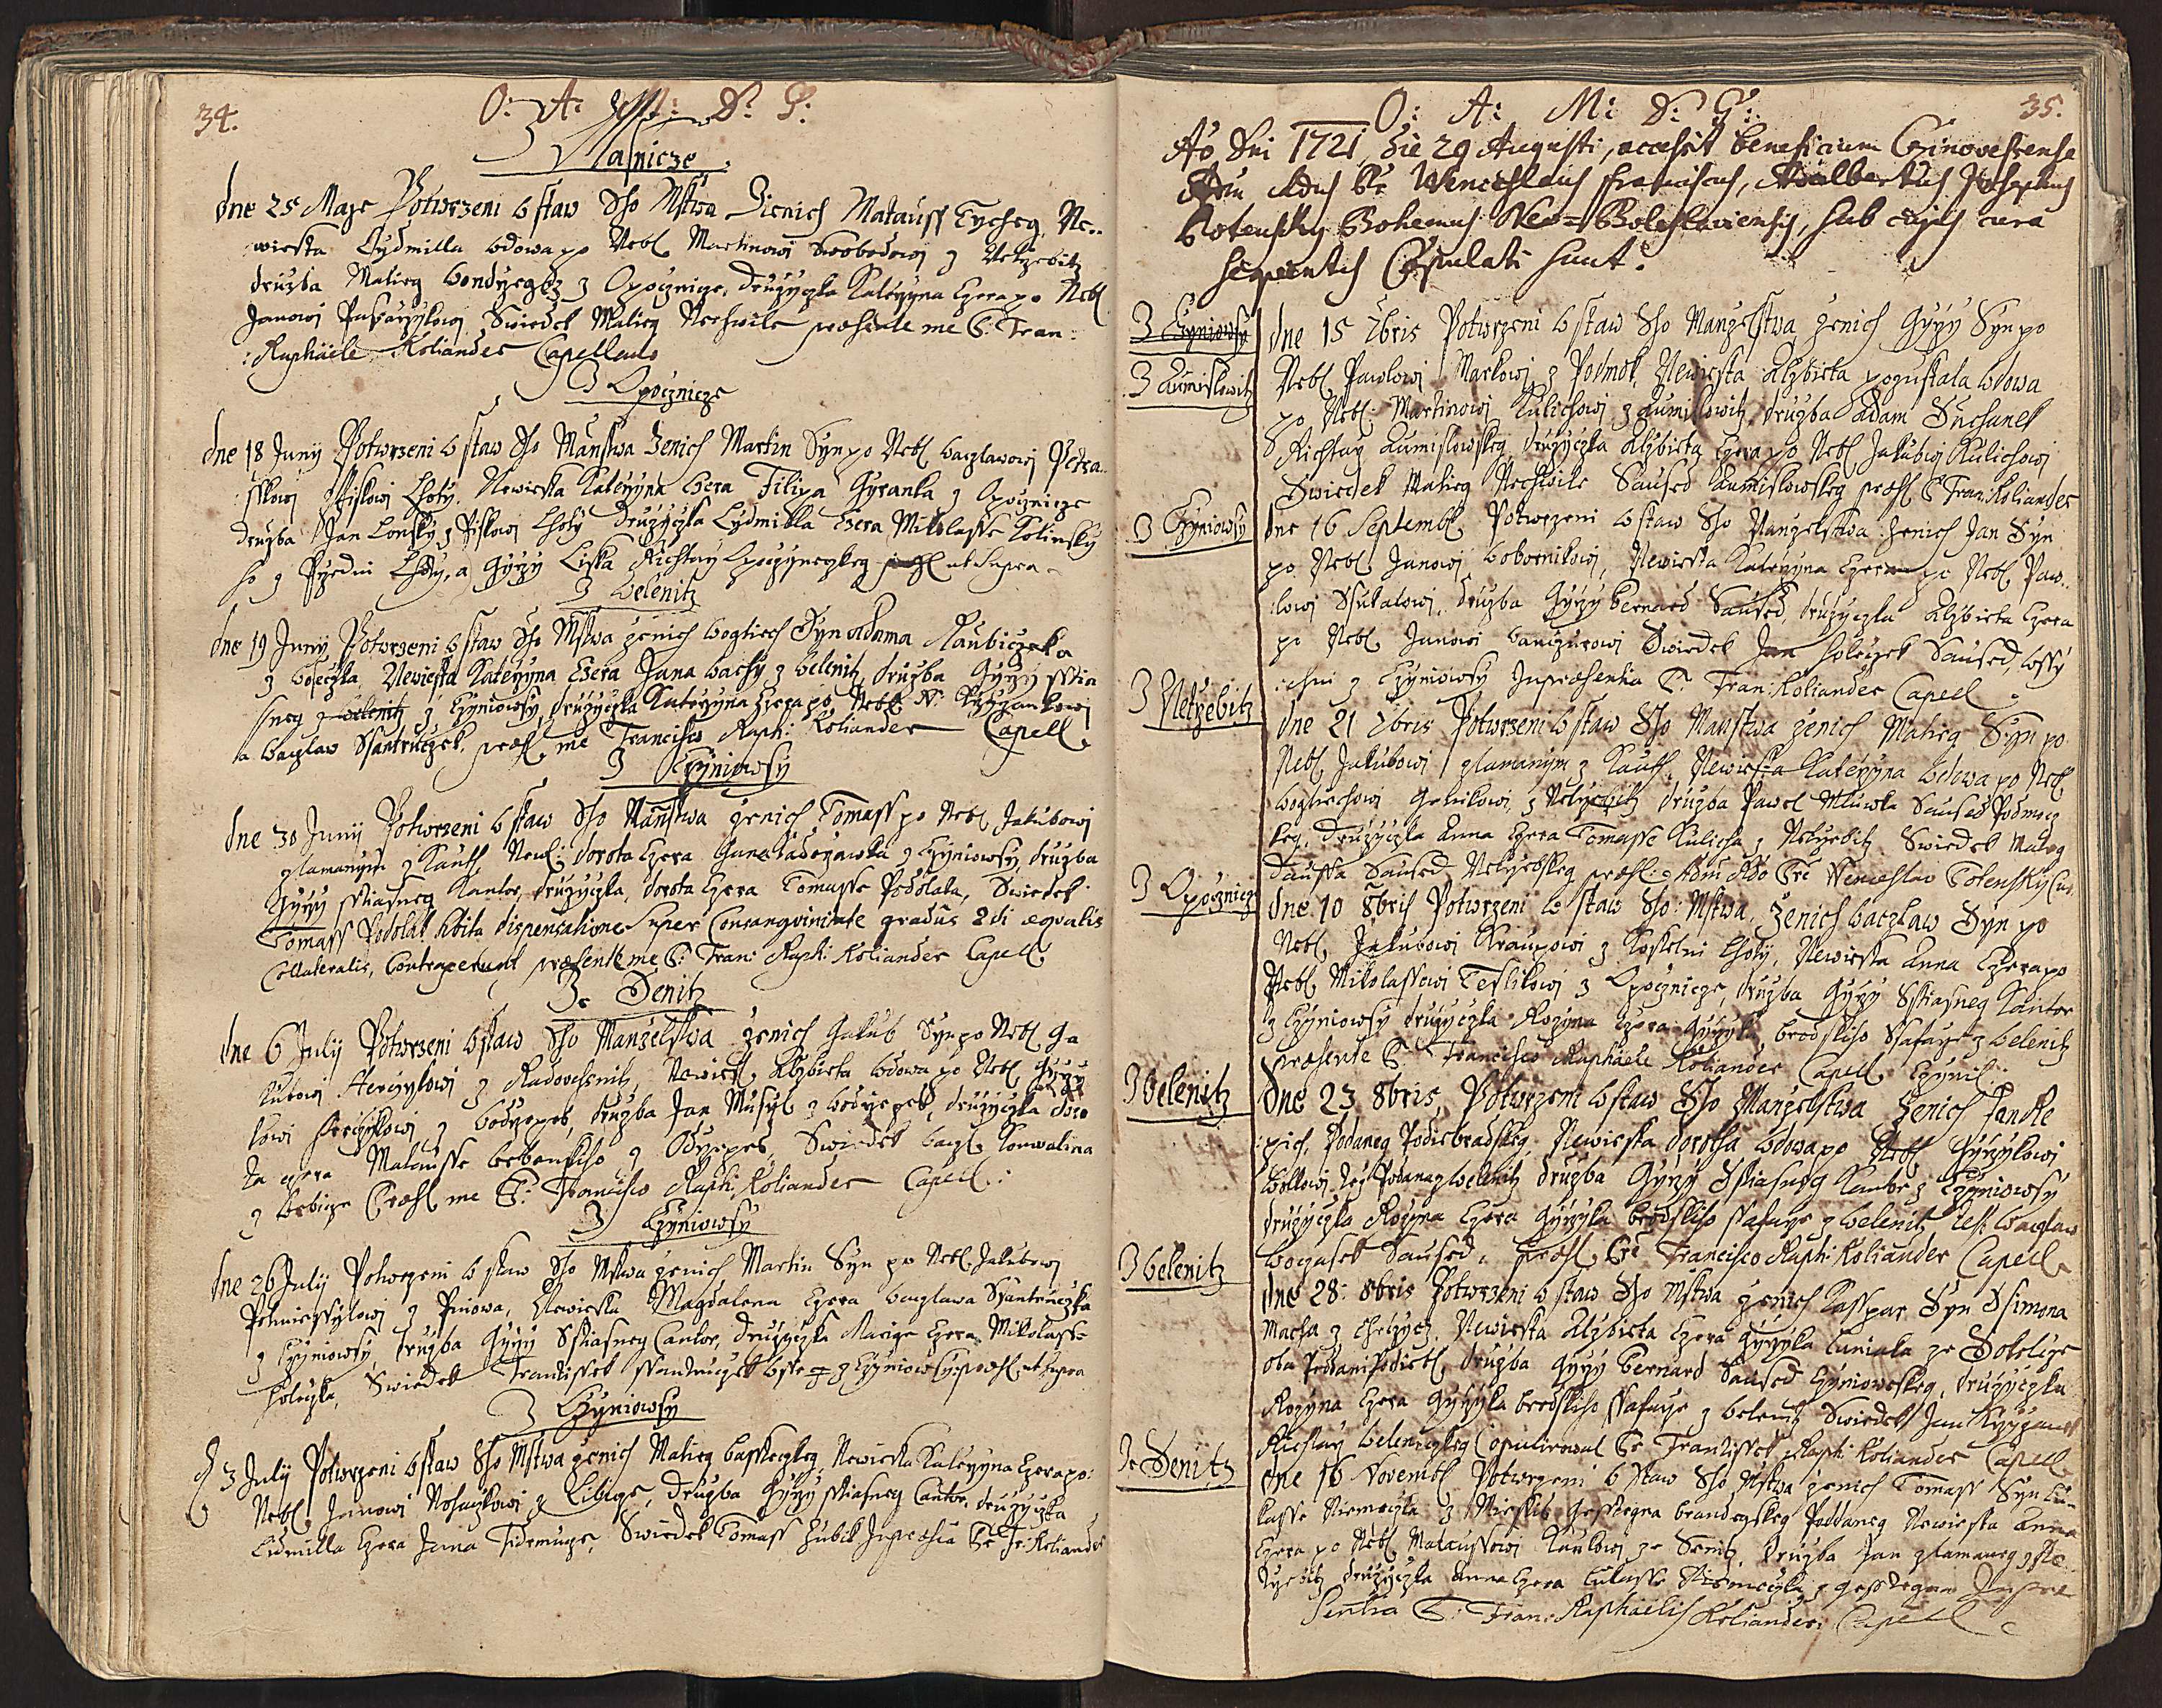 34.
O: A: M: D: G:
Z Masnicze
dne 25 Maje Potwrzeni w staw Sho Mstwa Zenich Matauss Tycheg, Ne..
wiesta Lydmilla wdowa po Nebl Martinowi Swobodowi z Netrzebitz
druzba Matieg z Opocznicze, druzyczka Katerzyna Czera po Nebl
Janowi Swiedek Matieg Nechwile præsente me P: Fran:
:Raphäele Koliander Capellano
Z Opocznicze
dne 18 Junij Potwrzeni w staw Sho Manstwa Zenich Martin Syn po Nebl Waczlawowi Petra..
sskowi z Piskowi Lhoty. Newiesta Katerzyna Czera Filipa Gyranka z Opocznicze
druzba Jan Lonsky z Piskowi Lhoty druzyczka Lydmilla Czera Mikolasse Kolinsky
ho z Przedni Lhoty, a Gyrzy Liska Richtarz Opocznyczkeg præs ut supra
Z Welenitz
dne 19 Junij Potwrzeni w staw Sho Mstwa zenich Wogtiech Syn Adama Raubiczka
z Woseczka, Newiesta Katerzyna Czera Jana Wachy z Welenitz, druzba Gyrzy Sstia
sneg z Welenitz z Czyniowsy, druzyczka Katerzyna Czera po Nebl. N: Krzyzankowi
a Waczlaw Ssantruczek, præs. me Francisco Raph: Koliander Capell.
Z Czyniowsy
dne 30 Junij Potwrzeni w staw Sho Manstwa zenich Tomass po Nebl Jakubowi
zlamanym z Kauth, Newi: dorota Czera Gana z Czyniowsy, druzba
Gyrzy Sstiasneg Kantor, druzyczka, dorota Czera Tomasse Podolaka, Swiedek
Tomass Podolak hbita dispensatione super Consangvinitate gradus 2di æqvalis
Collateralis, Contraxerunt præsente me P: Fran: Raph: Koliander Capell.
Ze Senitz
dne 6 Julij Potwrzeni w staw Sho Manzelstwa zenich Gakub Syn po Nebl Ga
kubowi Herczykowi z Radowessnitz, Newiest, Alzbieta wdowa po Nebl Gyrzy
kowi z Wodrzepes, druzba Jan Musyl z Wodrzepes, druzyczka doro
ta czera Matausse Urbanskiho z Odrzepes, Swiedek Wacz. Konwalina
z Wrbicze Præs me P: Francisco Raph: Koliander Capell.:
Z Czyniowsy
dne 26 Julij Potwrzeni w staw Sho Mstwa zenich Martin Syn po Nebl. Jakubowi
z Pniowa, Newiesta Magdalena Czera Waczlawa Ssantruczka
z Czyniowsy, druzba Gyrzy Sstiasneg Cantor, druzyczka Marige Czera Mikolasse
Holuzka, Swiedek Frantissek Ssantruczek wsse z Czyniowsy præs ut supra
Z Czyniowsy
d 3 Julij Potwrzeni w staw Sho Mstwa zenich Matieg Basseczkeg, Newiesta Katerzyna Czera po:
Nebl, Janowi Nohaczkowi z Libicze, druzba Gyrzy Sstiasneg Cantor, druzyczka
Lidmilla Czera Jana Swiedek Tomass Hubik In præsentia P: Fr: Koliander
35.
O: A: M: D: G:
Ao Dni 1721 die 29 Augusti, accessit beneficium Czinovesiense
Adm Rdus Pr Wenceslaus Franciscus, Adalbertus Josephus
Totensky Bohemus Neo=Boleslaviensis, sub cujus cura
sequentes Copulati sunt.
Z Czyniowsy
Z Aumislowitz
dne 15 7bris Potwrzeni w staw Sho Manzelstwa, zenich Gyrzy Syn po
Nebl Pawlowi Markowi z Podmok, Newiesta Alzbieta pozustala wdowa
po Nebl. Martinowi Kulichowi z Aumislowitz druzba Adam Suchanek
Richtarz Aumislowskeg druzyczka Alzbieta Czera po Nebl Jakubowi Kulichowi
Swiedek Matieg Nechwile Saused Aumislowskeg præs P Fran: Koliander
Z Czyniowsy
dne 16 Septemb. Potwrzeni w staw Sho Manzelstwa zenich Jan Syn
po Nebl Janowi Wobornikowi, Newiesta Katerzyna Czera po Nebl Paw..
lowi Ssukalowi, druzba Gyrzy Bernard Saused, druzyczka Alzbieta Czera
po Nebl Janowi Wanczurowi Swiedek Jan Holeczek Saused, wssy
:chni z Czyniowsy In præsentia P. Fran: Koliander Capell
Z Netrzebitz
dne 21 7bris Potwrzeni w staw Sho Manstwa zenich Matieg Syn po
Nebl, Jakubowi zlamanym z Kauth, Newiesta Katerzyna Wdowa po Nebl
Wogtiechowi z Netrzebitz druzba Pawel Mluwka Saused Podmocz
keg, druzyczka Anna Czera Tomasse Kulicha z Netrzebitz Swiedek Mateg
Saused Netrzebskeg præs. Adm Rdo Pre Wenceslao Totensky Cur
Z Opocznicze
dne 10 8bris Potwrzeni w staw Sho: Mstwa, Zenich Waczlaw Syn po
Nebl, Jakubowi Kraupowi z Kostelni Lhoty, Newiesta Anna Czera po
Nebl. Mikolassowi Teslikowi z Opocznicze, druzba Gyrzy Sstiasneg Kantor
z Czyniowsy druzyczka Rozyna Czera Gyrzyka brodskiho Ssafarze z Welenitz
præsente P. Francisco Raphaele Koliander Capell Czynil:
Z Welenitz
Dne 23 8bris, Potwrzeni w staw Sho Manzelstwa Zenich Jan Re
:pich, Podaneg Podiebradskeg, Newiesta dorotha Wdowa po Nebl Gyrzykowi
z Welenitz druzba Gyrzy Sstiasneg Kantor z Czyniowsy
druzyczka Rozyna Czera Gyrzyka brodskiho ssafarze z Welenitz Test Waczlaw
Woczasek Saused, præs. Pre Francisco Raph: Koliander Capell.
Z Welenitz
dne 28: 8bris Potwrzeni w staw Sho Mstwa zenich Kasspar Syn Ssimona
Macha z Newiesta Alzbieta Czera Gyrzyka Cuniala ze Sokolcze
oba Poddani Podieb, druzba Gyrzy Bernard Saused Czyniowskeg, druzyczka
Rozyna Czera Gyrzyka brodskiho ssafarze z Welenitz Swiedek Jan Krzyzanek
Richtarz Welenczkeg Copulirowal Pr Frantissek Raph: Koliander Capell
Ze Senitz
dne 16 Novemb Potwrzeni w staw Sho Mstwa zenich Tomass Syn Lu-
kasse Niemeczka z Poddaneg Newiesta Anna
Czera po Nebl Mataussowi Kaulowi ze Senitz, druzba Jan zlamaneg z Ne
trzebitz druzyczka Anna Czera Lukasse Niemeczka z In præ
sentia P: Fran: Raphäelis Koliander Capell